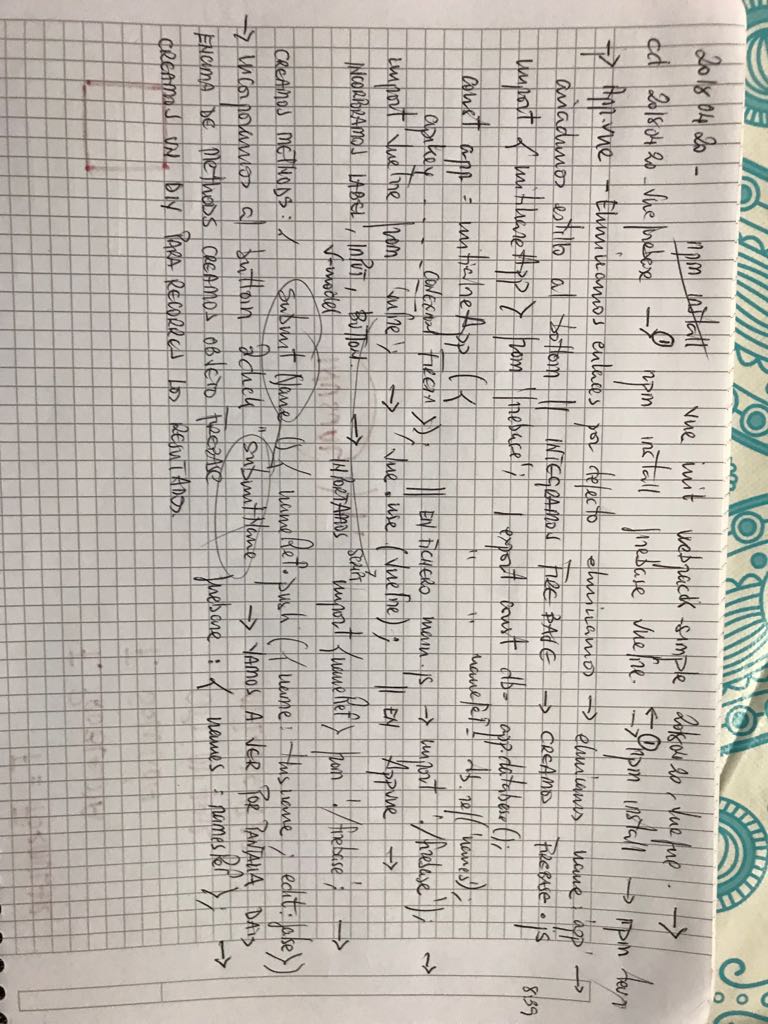 20180420 - npm install vue init webpack-simple 20180420_vuefire. →
cd 20180420_vuefirebase → ① npm install firebase vuefire. ① npm install → npm
→ App.vue - Eliminamos enlaces por defecto eliminamos → eliminamos name: 'app' →
añadimos estilo al bottom || INTEGRAMOS FIREBASE → CREAMOS FIREBASE.js
import { initializeApp } from 'firebase'; | export const db = app.database();
const app = initializeApp ({ " " nameRef = db.ref('names);
apikey ...... CONEXION }); || EN FICHERO main.js → import './firebase'); →
import Vuefire from 'vufire'; → Vue.use (Vuefire); || EN App.vue →
INCORPORAMOS LABEL, INPUT, BUTTON. → IMPORTAMOS SCRIPT import {nameRef} from './firebase'; →
v-model
CREAMOS METHODS: { submitName () { nameRef.push ({ name: this.name; edit: false})
→ incorporamos al button "submitName → VAMOS A VER POR PANTALLA
ENCIMA DE METHODS CREAMOS OBJETO FIREBASE firebase: { names: namesRef }; →
CREAMOS UN DIV PARA RECORRER LOS RESULTADOS.
8:39